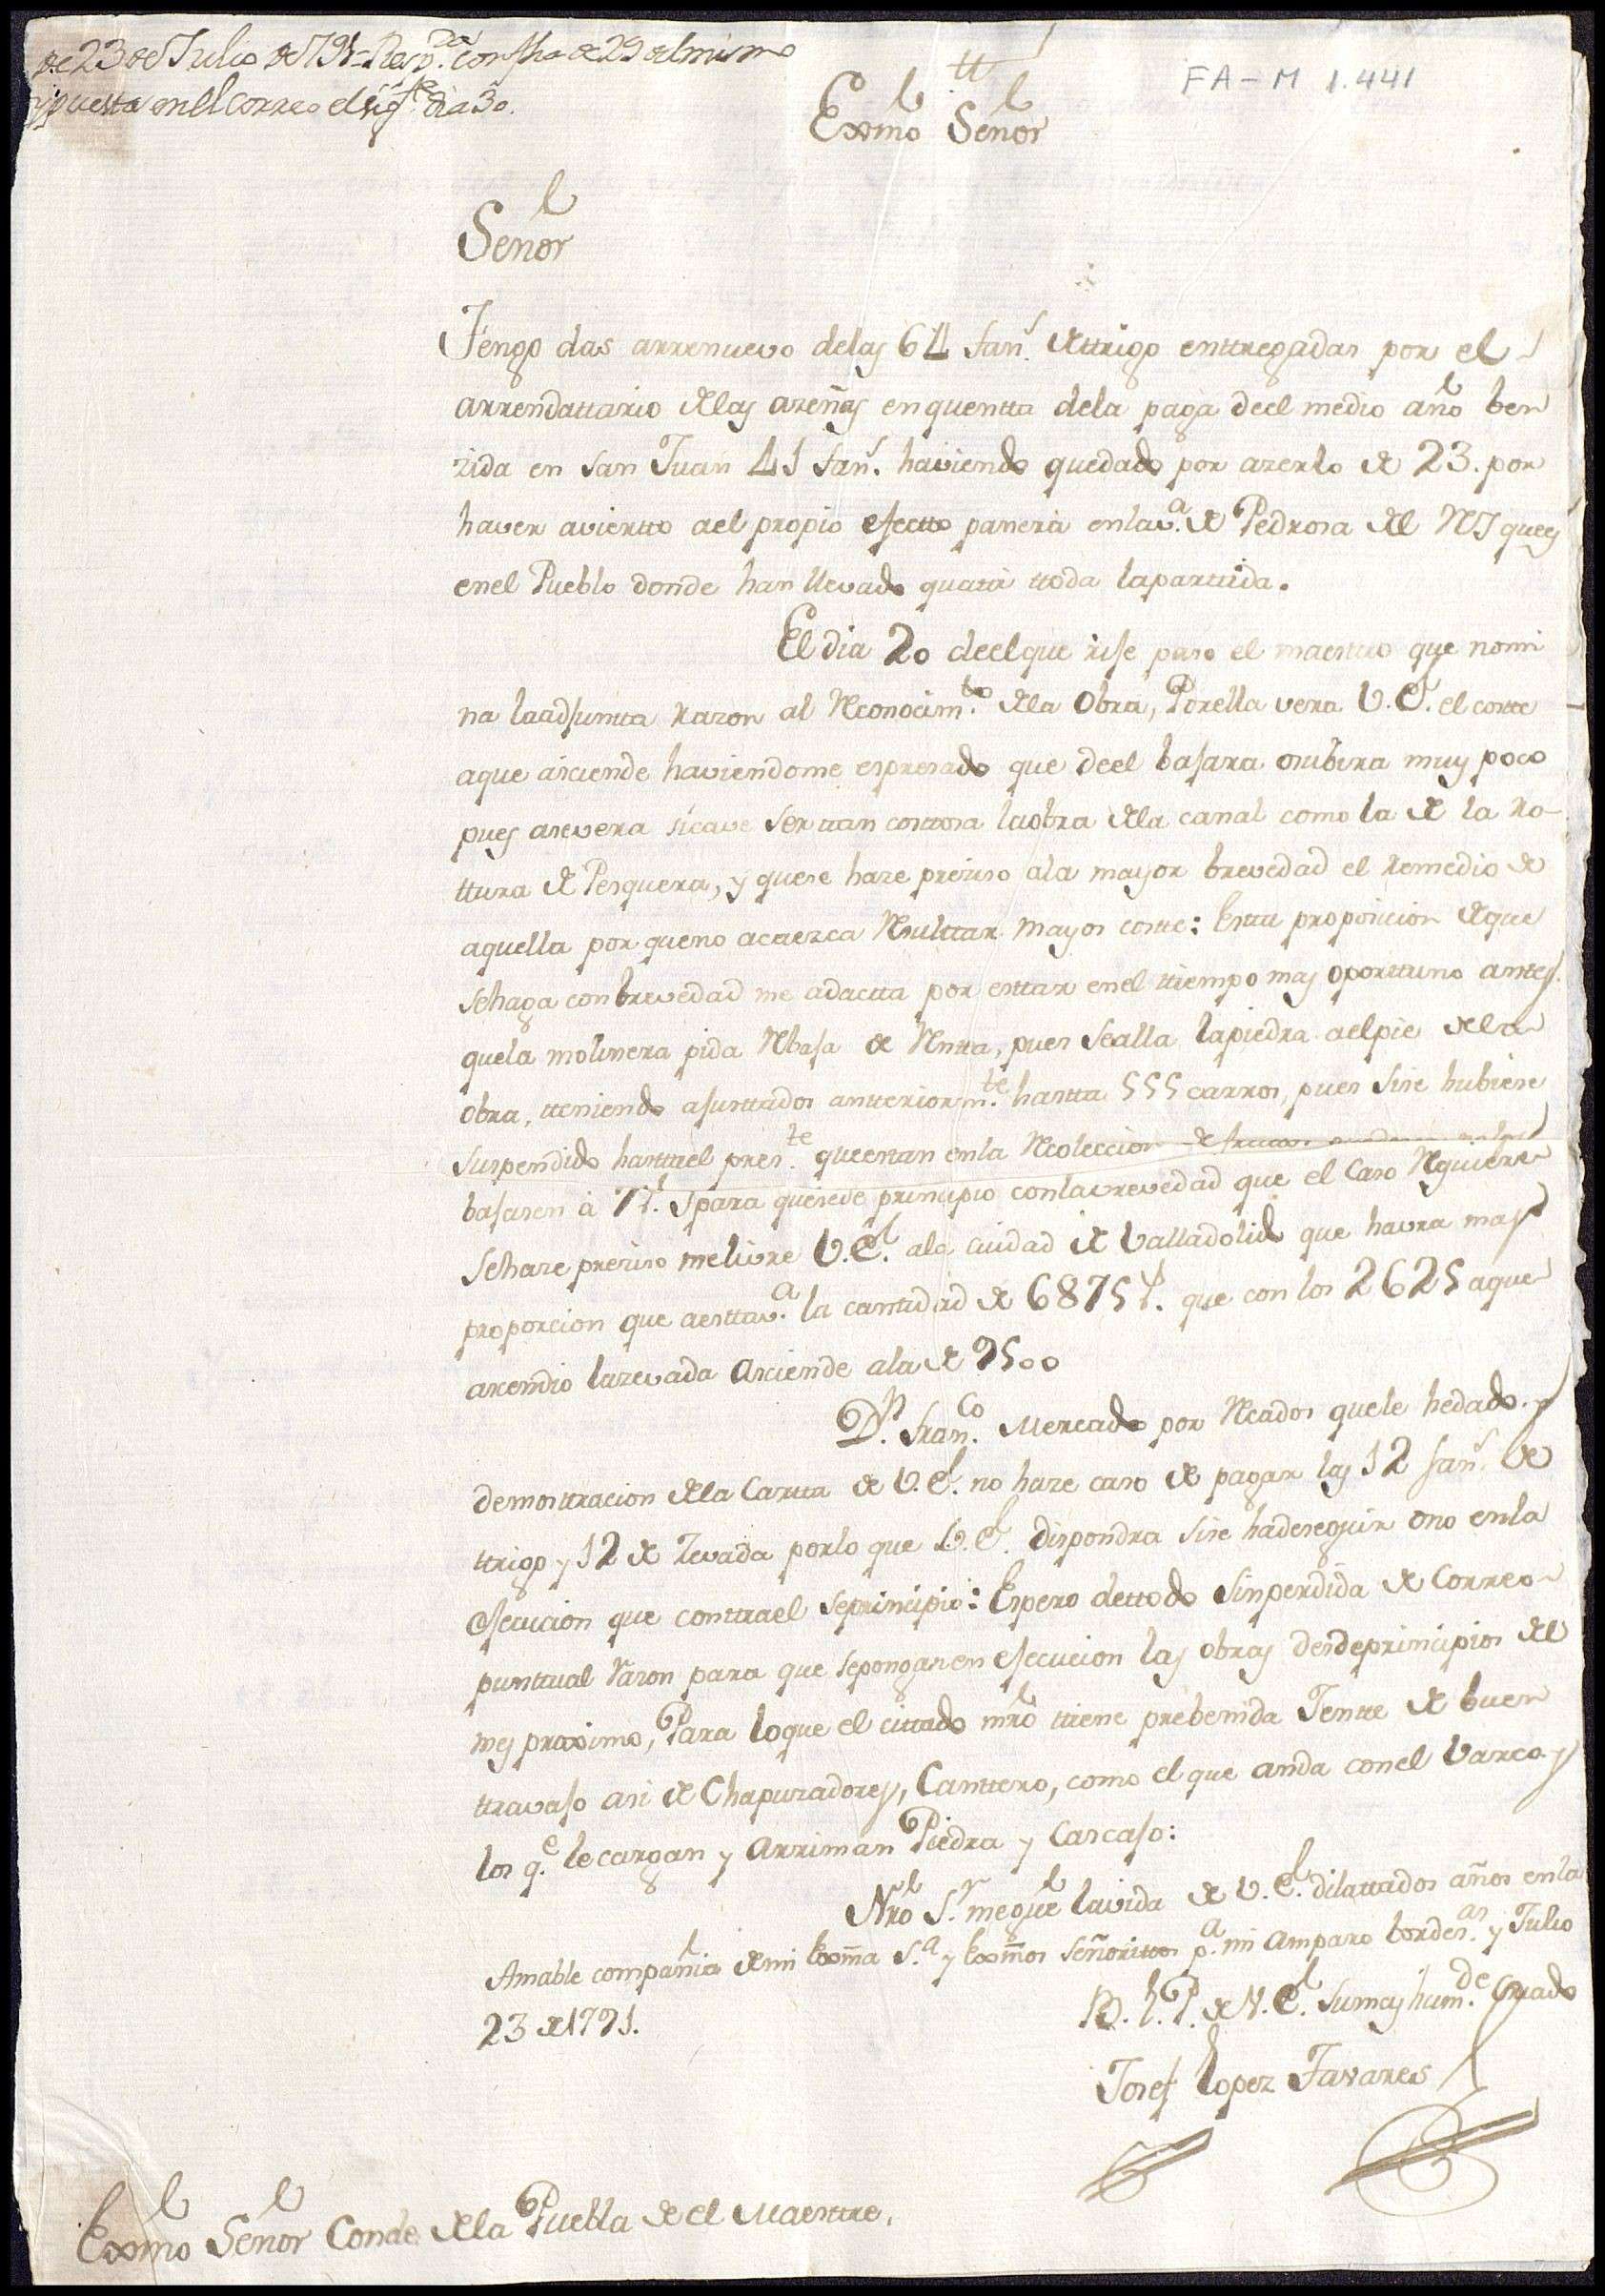 de 23 de Julio de 791 = Resp.da con fha de 29 del mismo
y puesta en el correo el sig.te dia 30.
FA-M 1.441
tt
Exmo Señor
Señor
Tengo das arrenuevo delas 64 fan.s de ttrigo enttregadas por el
arrendattario de las azeñas en quentta dela paga deel medio año ben
zida en San Juan 41 fan.s haviendo quedado por azerlo de 23. por
haver aviertto ael propio efectto panera enla v.a de Pedrosa del Rey que es
enel Pueblo donde han llevado quasi ttoda la parttida.
El dia 20 deelque rije paso el maesttro que nomi
na la adjuntta razon al Reconocim.to de la Obra, Por ella vera V.E. el costte
aque asciende haviendome espresado que deel bajara o subira muy poco
pues asevera si cave ser ttan costtosa la obra de la canal como la de la Ro-
ttura de Pesquera, y que se haze preziso ala mayor brevedad el remedio de
aquella por que no acaezca Resulttar mayor costte: Estta proposicion de que
se haga con brevedad me adactta por esttar enel ttiempo mas oporttuno antes
quela molinera pida Rebaja de Rentta, pues se alla la piedra ael pie dela
obra, tteniendo ajusttados antteriorm.te hastta 555 carros, pues si se hubiese
suspendido hastta el pres.te que esttan en la Recoleccion de fruttos
bajasen à para que se de principio con la brevedad que el Caso Requiere
se haze preziso me livre V.E. ala ciudad de Valladolid que havra mas
proporcion que a estta v.a la canttidad de 6875 r.s que con los 2625 aque
ascendio la zevada asciende ala de 9500
D.n Fran.co Mercado por Recados que le he dado y
demosttracion de la Cartta de V.E. no haze caso de pagar las 12 fan.s de
ttrigo y 12 de Zevada por lo que V.E. dispondra si se ha de seguir o no en la
ejecucion que conttra el se principio: Espero de ttodo sin perdida de Correo
punttual razon para que se pongan en ejecucion las obras desde principios del
mes proximo, Para lo que el cittado mro ttiene prebenida Jentte de buen
ttravajo asi de Chapuzadores, Canttero, como el que anda con el Varco y
los q.e le cargan y Arriman Piedra y Cascajo:
Nro S.r me gue la vida de V.E. dilattados años en la
Amable compañia de mi Exma S.a y Exmos Señorittos p.a mi Amparo Bordes.as y Julio
23 de 1791.
B. L. P. de V.E. su mas hum.de Criado
Josef Lopez Tavares
Exmo Señor Conde de la Puebla de el Maesttre.